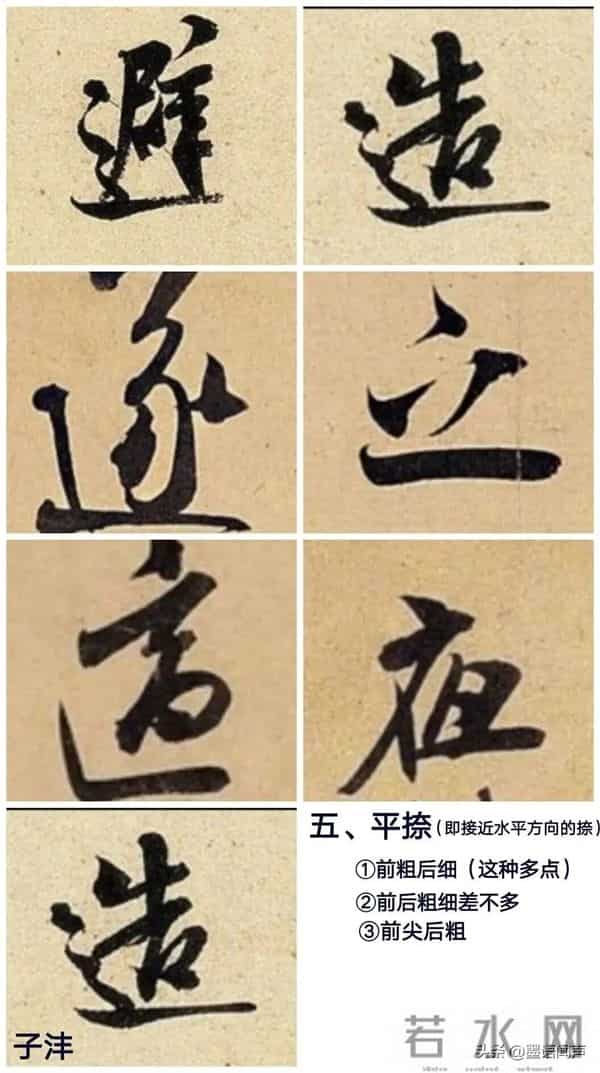 避 造
遂 立
造
五、平捺(即接近水平方向的捺)
①前粗后细(这种多点)
②前后粗细差不多
③前尖后粗
子沣
若水网
头条